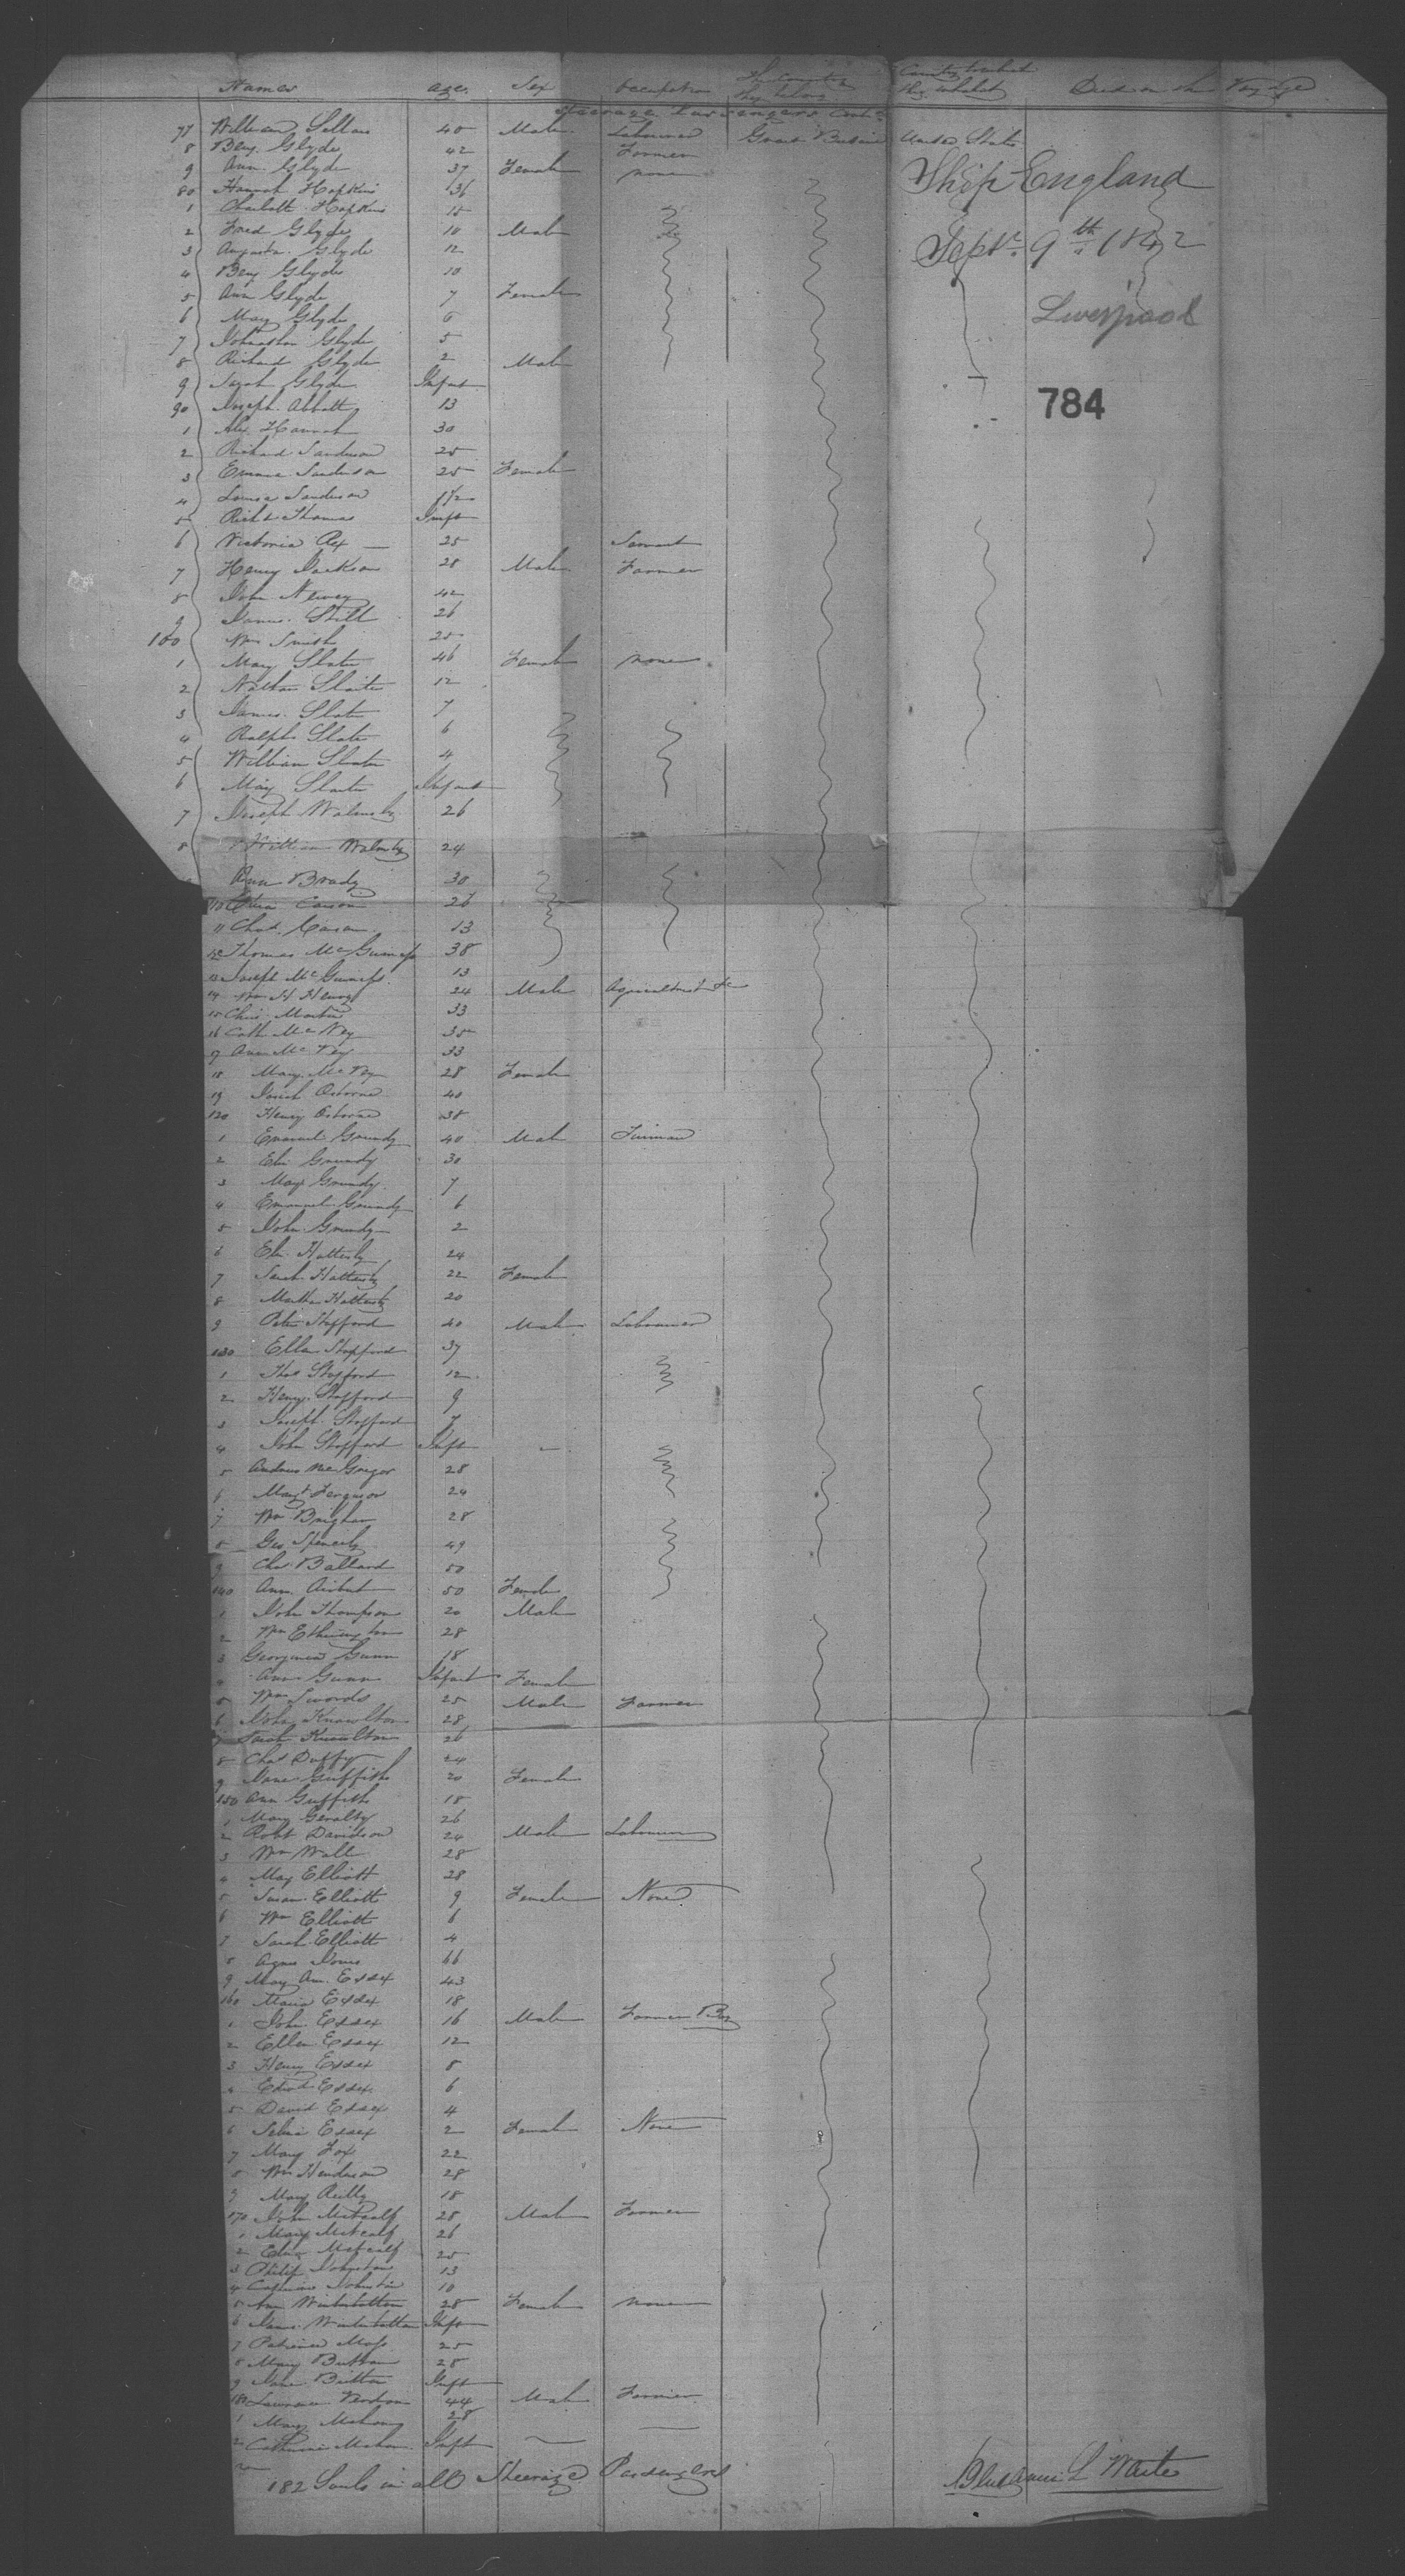 Names Age. Sex Occupation The Country they belong Country to which they inhabit Died on the Voyage
Steerage Passengers Cont.
77 William 40 Male Labourer Great Britain United States
8 Benj. Glyde 42 Farmer
9 Ann Glyde 37 Female none
80 Hannah Hopkins 36
1 Charlotte Hopkins 15
2 Fred Glyde 10 Male
3 Augusta Glyde 12
4 Benj Glyde 10
5 Ann Glyde 7 Female
6 Mary Glyde 6
7 Johnathan Glyde 5
8 Richard Glyde 2 Male
9 Sarah Glyde Infant
90 Joseph Abbott 13
1 Alex Hannah 30
2 Richard Sanderson 25
3 Emma Sanderson 25 Female
4 Louisa Sanderson 1 1/2
5 Richd Thomas Inft
6 Victoria Rex 25 Servant
7 Henry Jackson 28 Male Farmer
8 John Newey 42
9 James Still 26
100 Wm Smith 25
1 Mary Slater 46 Female none
2 Nathan Slater 12
3 James Slater 7
4 Ralph Slater 6
5 William Slater 4
6 Mary Slater Infant
7 Joseph Walmsly 26
8 William Walmsly 24
Ann Brady 30
110 Carson 26
11 Chas. Carson 13
12 Thomas McGuiness 38
13 Joseph McGuiness 13
14 Wm H Henry 24 Male Agriculturist &c
15 Chris Martin 33
16 Cath McVey 35
17 Ann McVey 33
18 Mary McVey 28 Female
19 Josiah Osborne 40
120 Henry Osborne 38
1 Emanuel Grundy 40 Male
2 Eliz Grundy 30
3 Mary Grundy 7
4 Emanuel Grundy 6
5 John Grundy 2
6 Eli Hattersly 24
7 Sarah Hattersly 22 Female
8 Martha Hattersly 20
9 Peter Stopford 40 Male Labourer
130 Ellen Stopford 37
1 Thos Stopford 12
2 Henry Stopford 9
3 Joseph Stopford 7
4 John Stopford Inft
5 Andrew McGregor 28
6 Margt Ferguson 24
7 Wm Brigham 28
8 Geo Spencely 49
9 Chas Ballard 50
140 Ann 50 Female
1 John Thompson 20 Male
2 Wm Etherington 28
3 Georgiana Gunn 18
4 Ann Gunn Infant Female
5 Wm Swords 25 Male Farmer
6 John Knowlton 28
7 Sarah Knowlton 26
8 Chas Duffy 24
9 Jane Griffiths 20 Female
150 Ann Griffiths 18
1 Mary Geralty 26
2 Robt Davidson 24 Male Labourer
3 Wm Wall 28
4 Mary Elliott 28
5 Susan Elliott 9 Female None
6 Wm Elliott 6
7 Sarah Elliott 4
8 Agnes Jones 66
9 Mary Ann Essex 43
160 Maria Essex 18
1 John Essex 16 Male Farmer Boy
2 Ellen Essex 12
3 Henry Essex 8
4 Edwd Essex 6
5 David Essex 4
6 Selina Essex 2 Female None
7 Mary Fox 22
8 Wm Henderson 28
9 Mary Reilly 18
170 John Metcalf 28 Male Farmer
1 Mary Metcalf 26
2 Eliza Metcalf 25
3 Philip Johnston 13
4 Catherine Johnston 10
5 Ann Winterbottom 28 Female none
6 James Winterbottom Inft
7 Patience Moss 25
8 Mary Button 28
9 Jane Button Inft
180 Lawrence 44 Male Farmer
1 Mary Mahony 28
2 Catherine Mahon Inft
182 Souls in all Steerage Passengers
Ship England
Septr. 9th 1842
Liverpool
784
L Waite